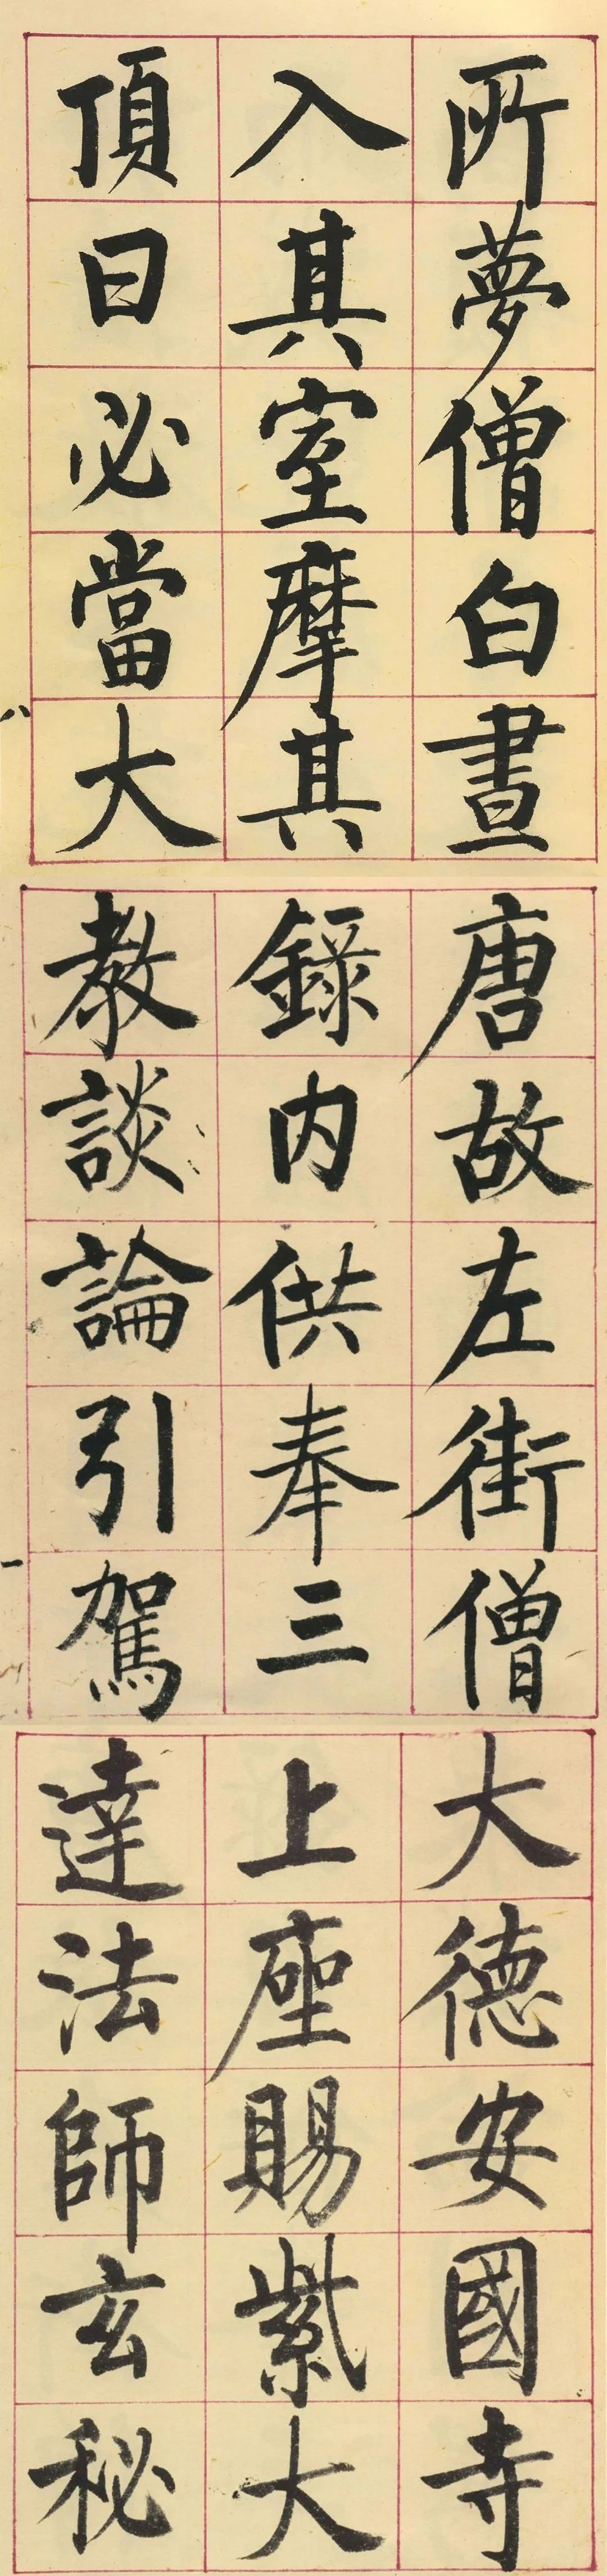 所夢僧白晝
入其室摩其
頂曰必當大
唐故左街僧
錄内供奉三
教談論引駕
大德安國寺
上座賜紫大
達法師玄秘